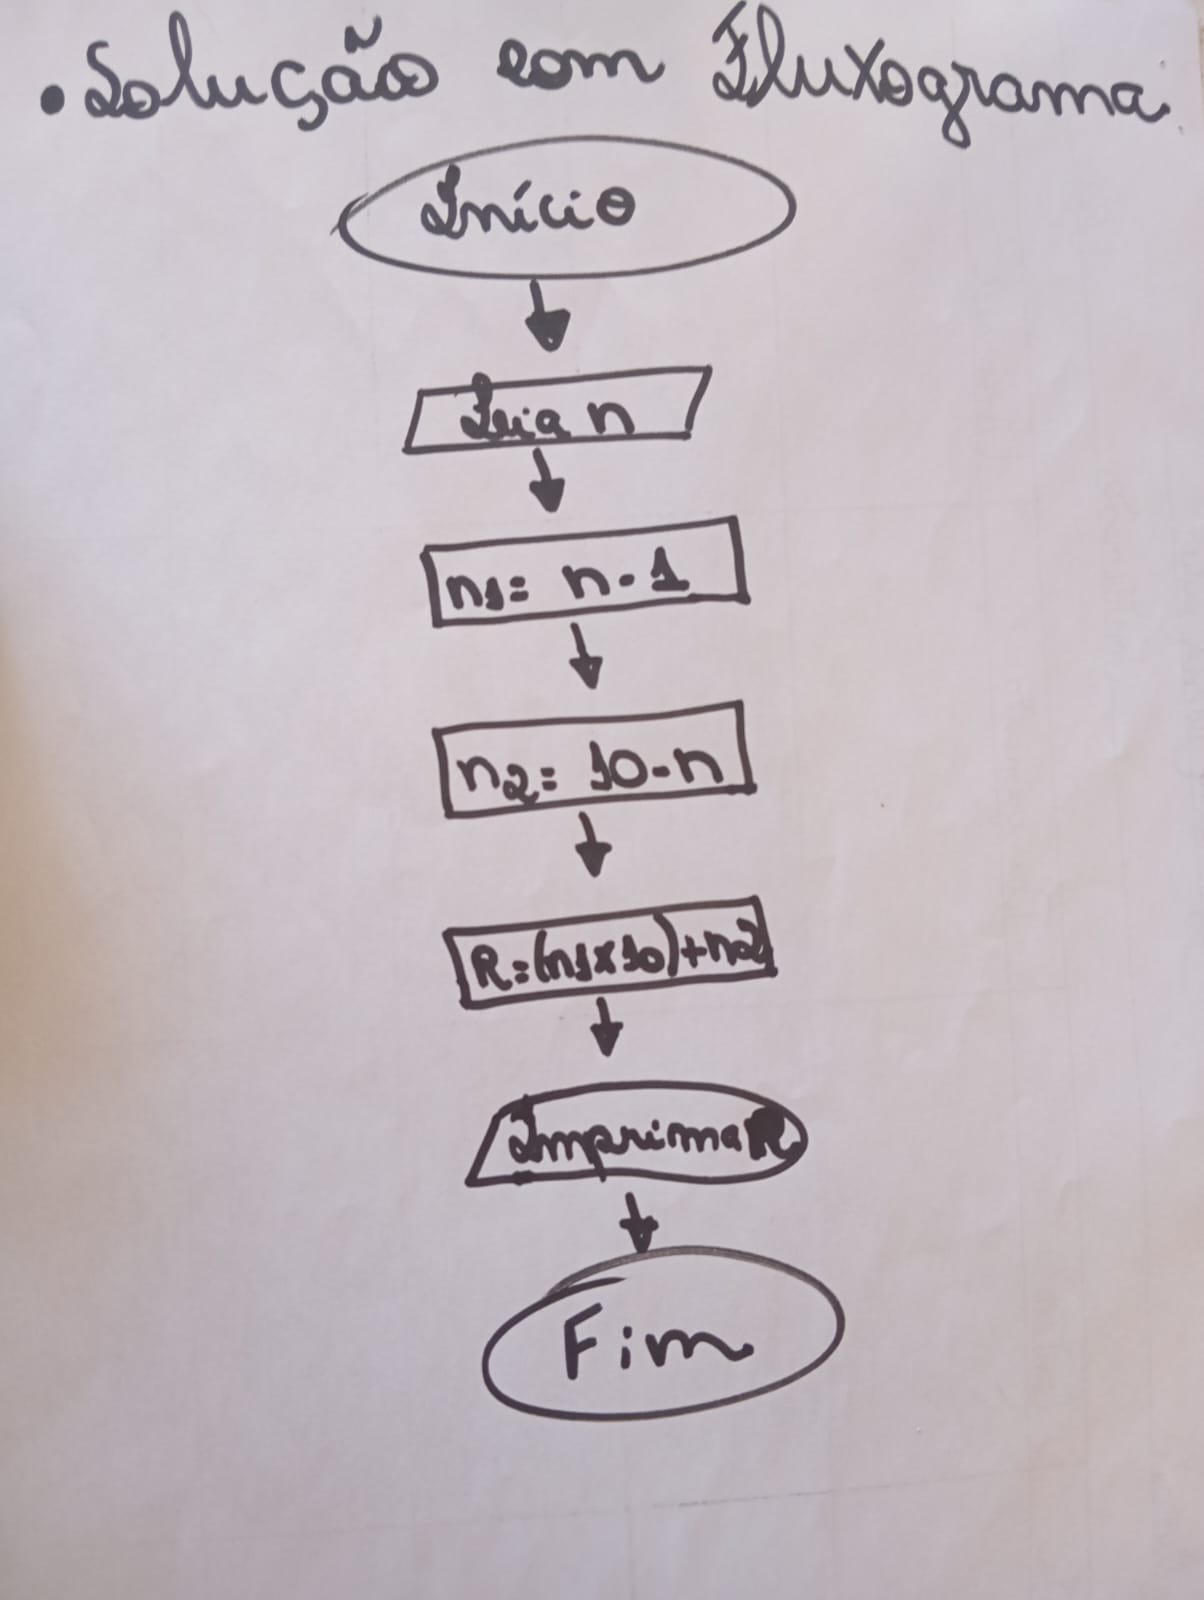 • Solução com Fluxograma
Início
Leia n
n1= n-1
n2= 10-n
R=(n1x10)+n2
Imprima R
Fim